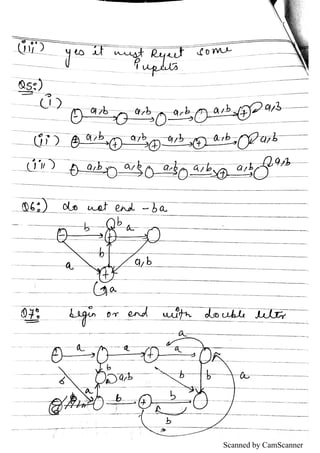 (iii) yes it must Reject some
inputs
Q5:)
(i) - a,b a,b a,b a,b + a,b
(ii) ± a,b + a,b + a,b + a,b a,b
(iii) ± a,b a,b a,b a,b + a,b a,b
Q6:) do not end -ba
b
- b + a
b
a + a,b
a
Q7: begin or end with double letter
a
- a a + a
b
b a,b b b a
a
b + b
b
Scanned by CamScanner